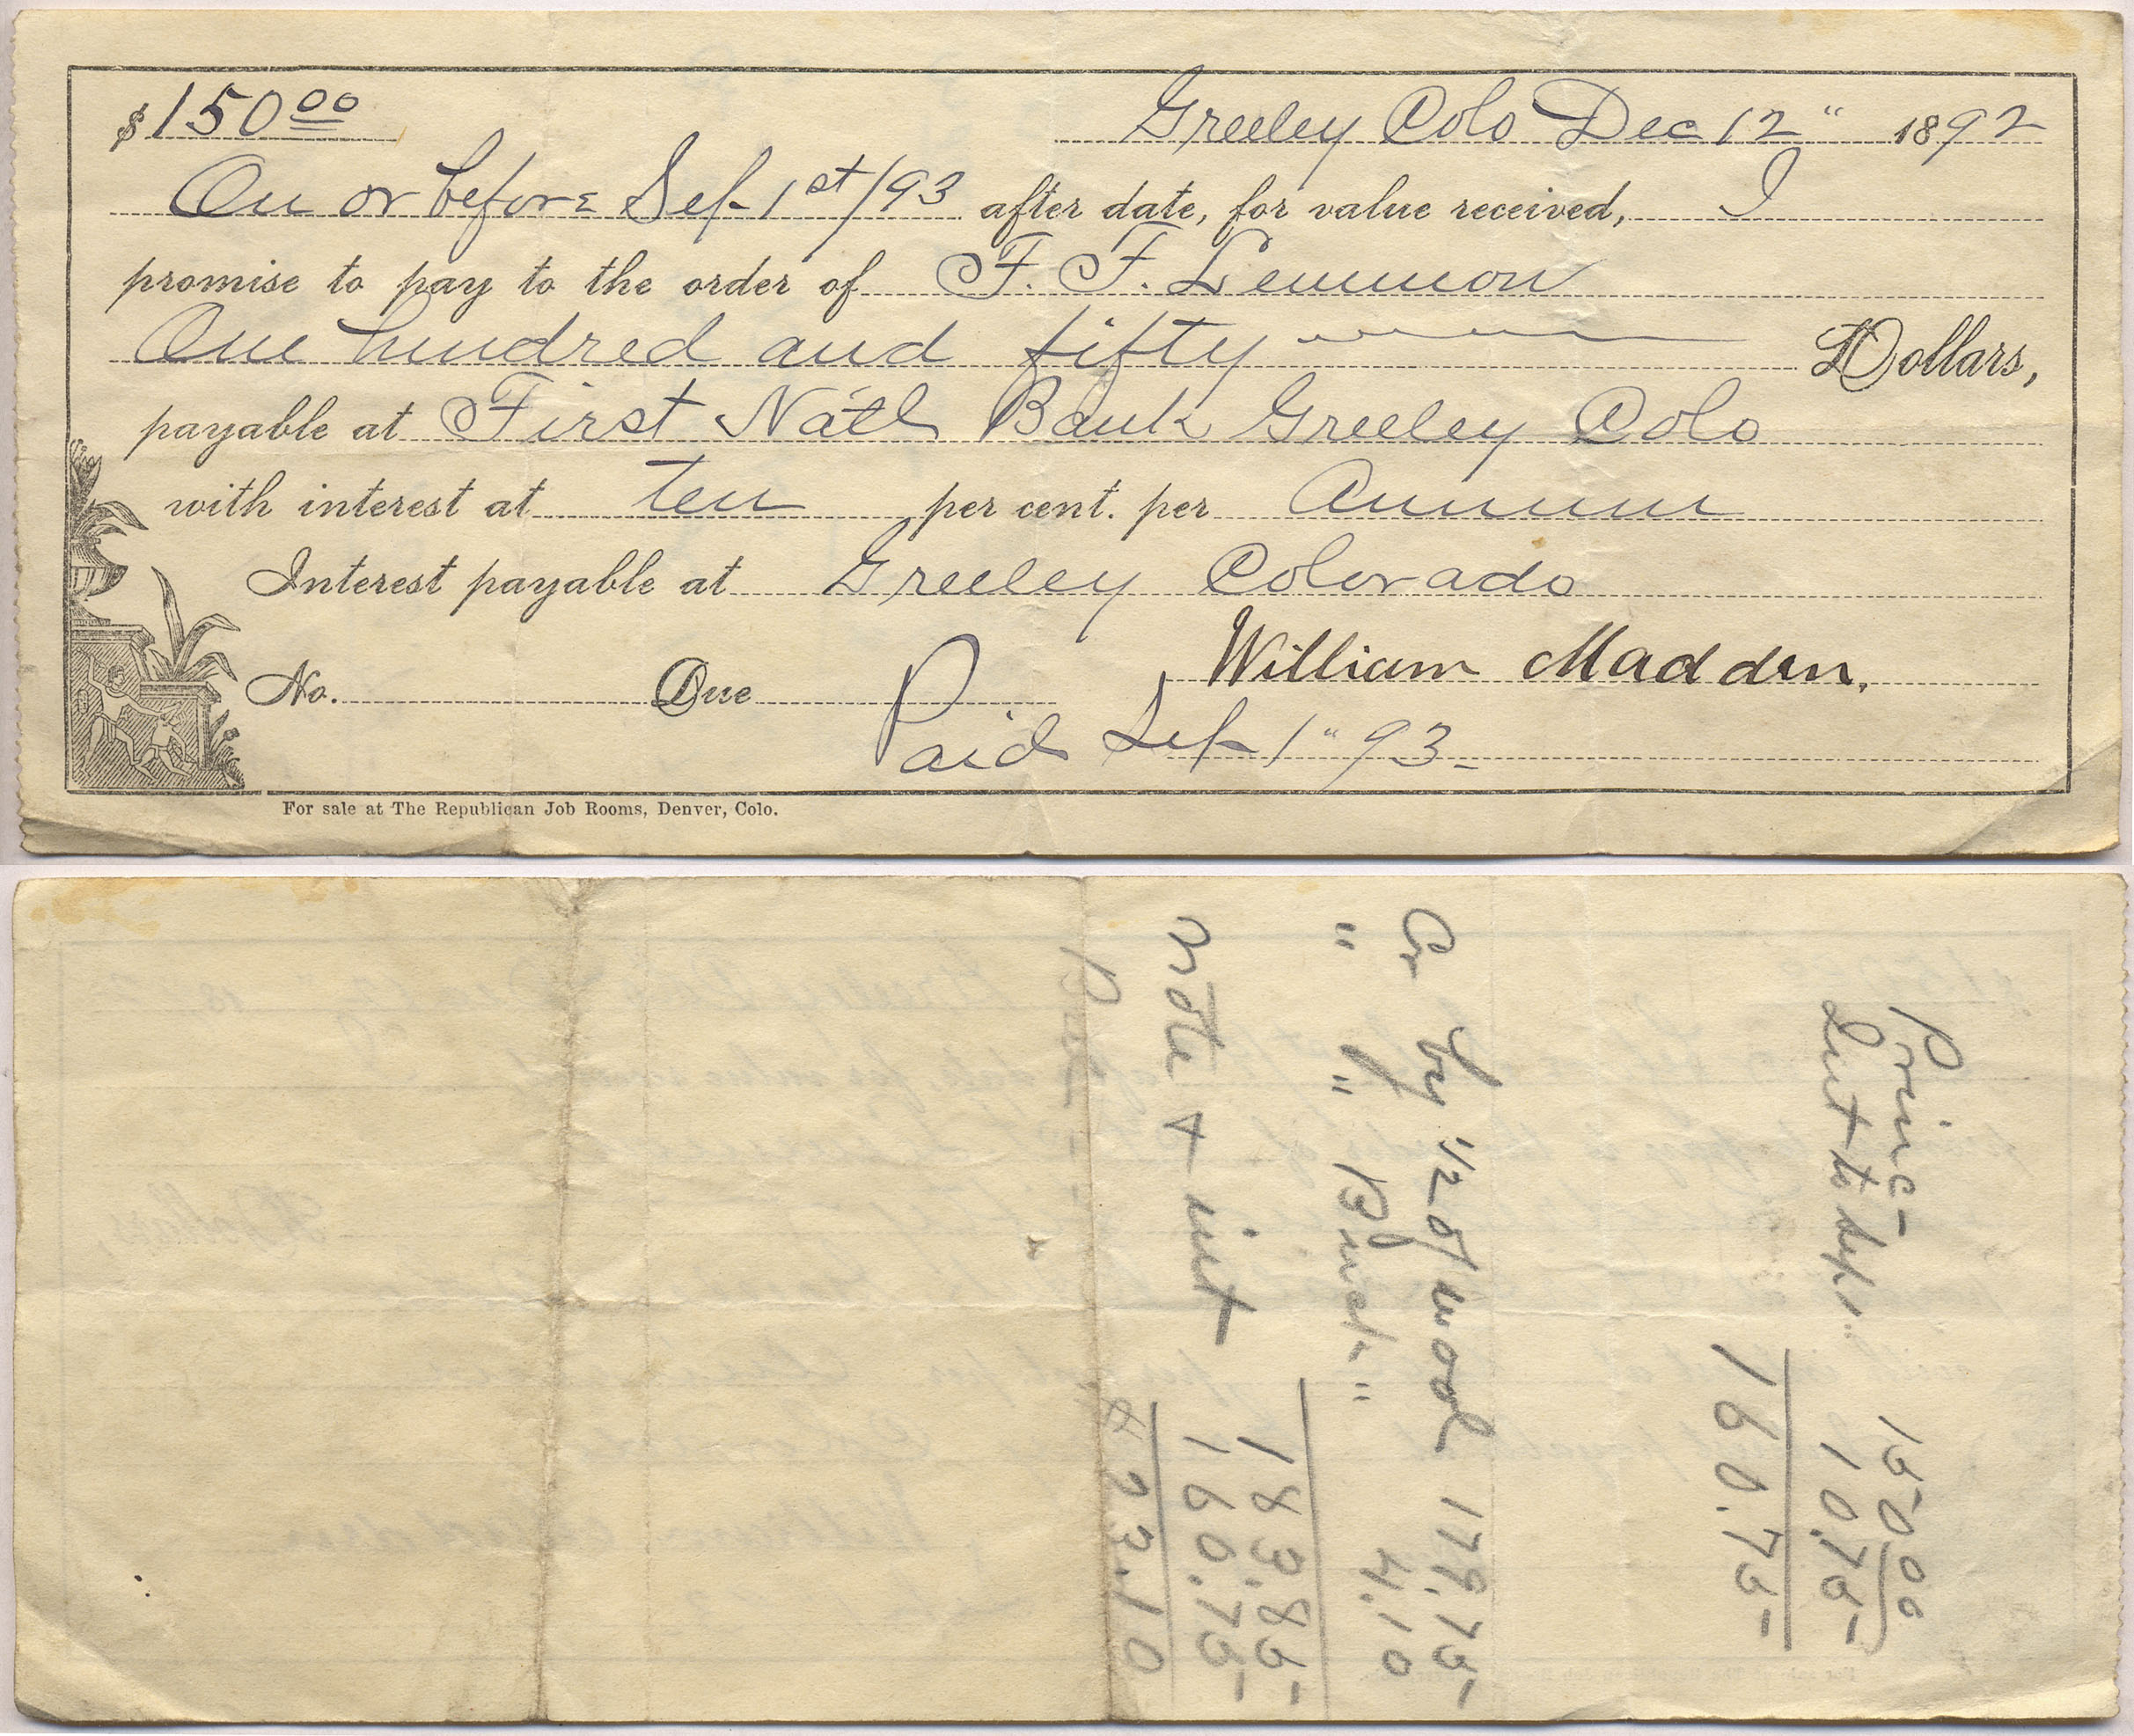 $150.00 Greeley Colo Dec 12" 1892
On or before Sep 1st/93 after date, for value received, I
promise to pay to the order of F. F. Lemmon
One hundred and fifty Dollars,
payable at First Nat'l Bank Greeley Colo
with interest at ten per cent. per Annum
Interest payable at Greeley Colorado
No. Due William Madden.
Paid Sep 1" 93-
For sale at The Republican Job Rooms, Denver, Colo.
Princ- 150.00
Int to Sep 1" 10.75
160.75
Cr by 1/2 of wool 179.75
" " Buck " 4.10
183.85
note & int 160.75
Bal $23.10